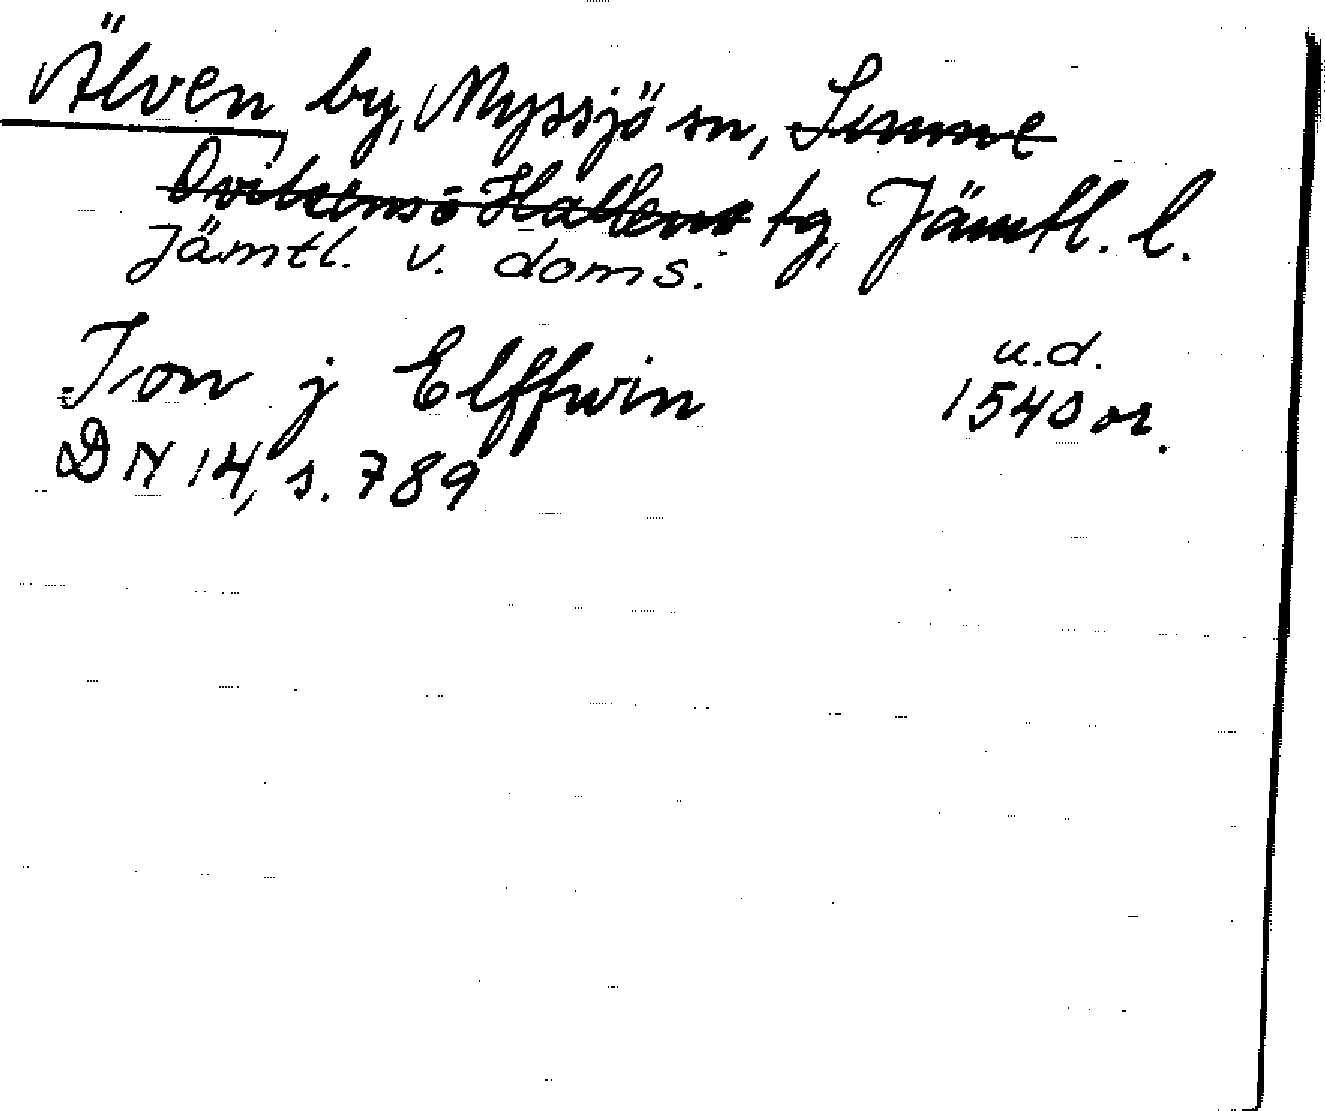 Älven by, Myssjö sn,
Hallens tg, Jämtl. l.
Jämtl. v. doms.
Jon j Elffwin u.d. 1540 or.
DN 14, s. 789